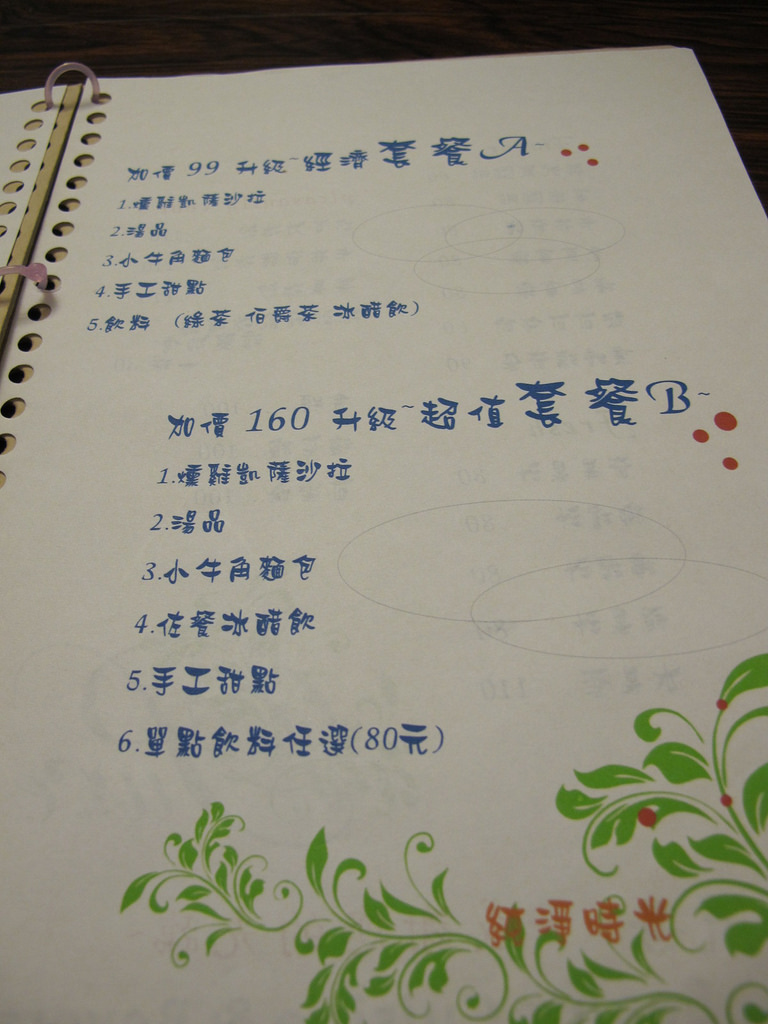 加價 99 升級~經濟套餐A~
1.燻雞凱薩沙拉
2.湯品
3.小牛角麵包
4.手工甜點
5.飲料 (綠茶 伯爵茶 冰醋飲)
加價 160 升級~超值套餐B~
1.燻雞凱薩沙拉
2.湯品
3.小牛角麵包
4.佐餐冰醋飲
5.手工甜點
6.單點飲料任選(80元)